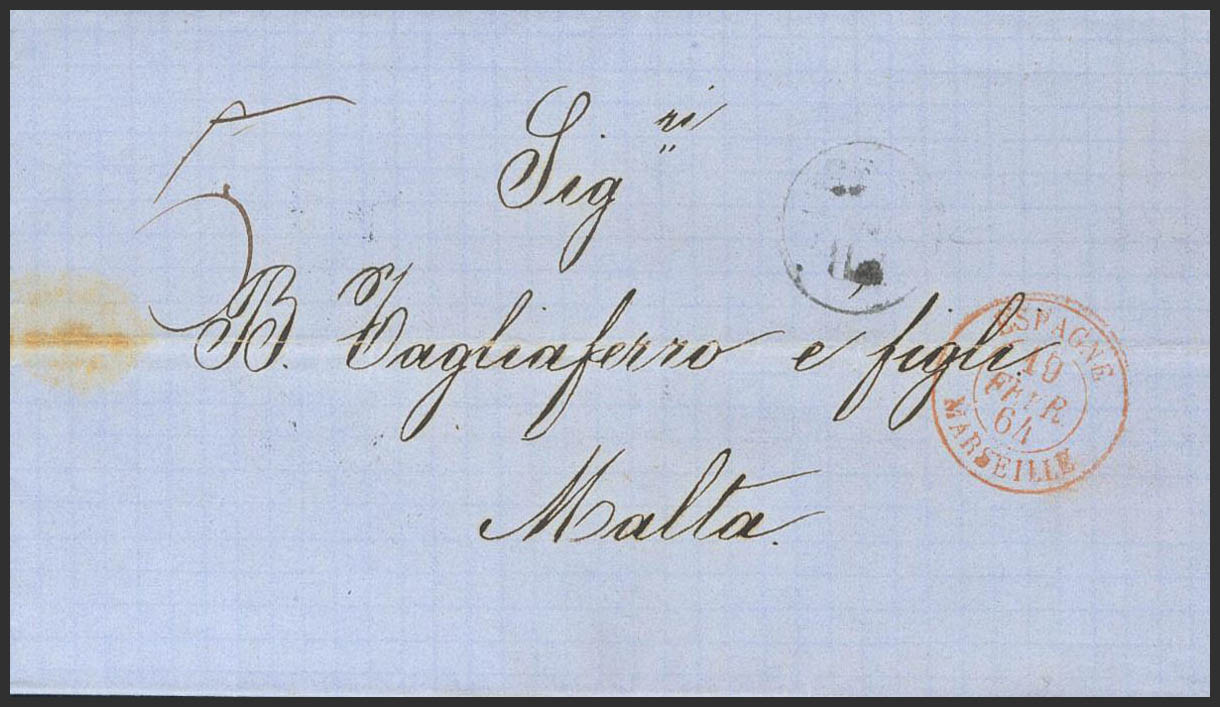 5
Sig.ri
B. Tagliaferro e figli.
Malta.
ESPAGNE
19
FEVR.
64
MARSEILLE